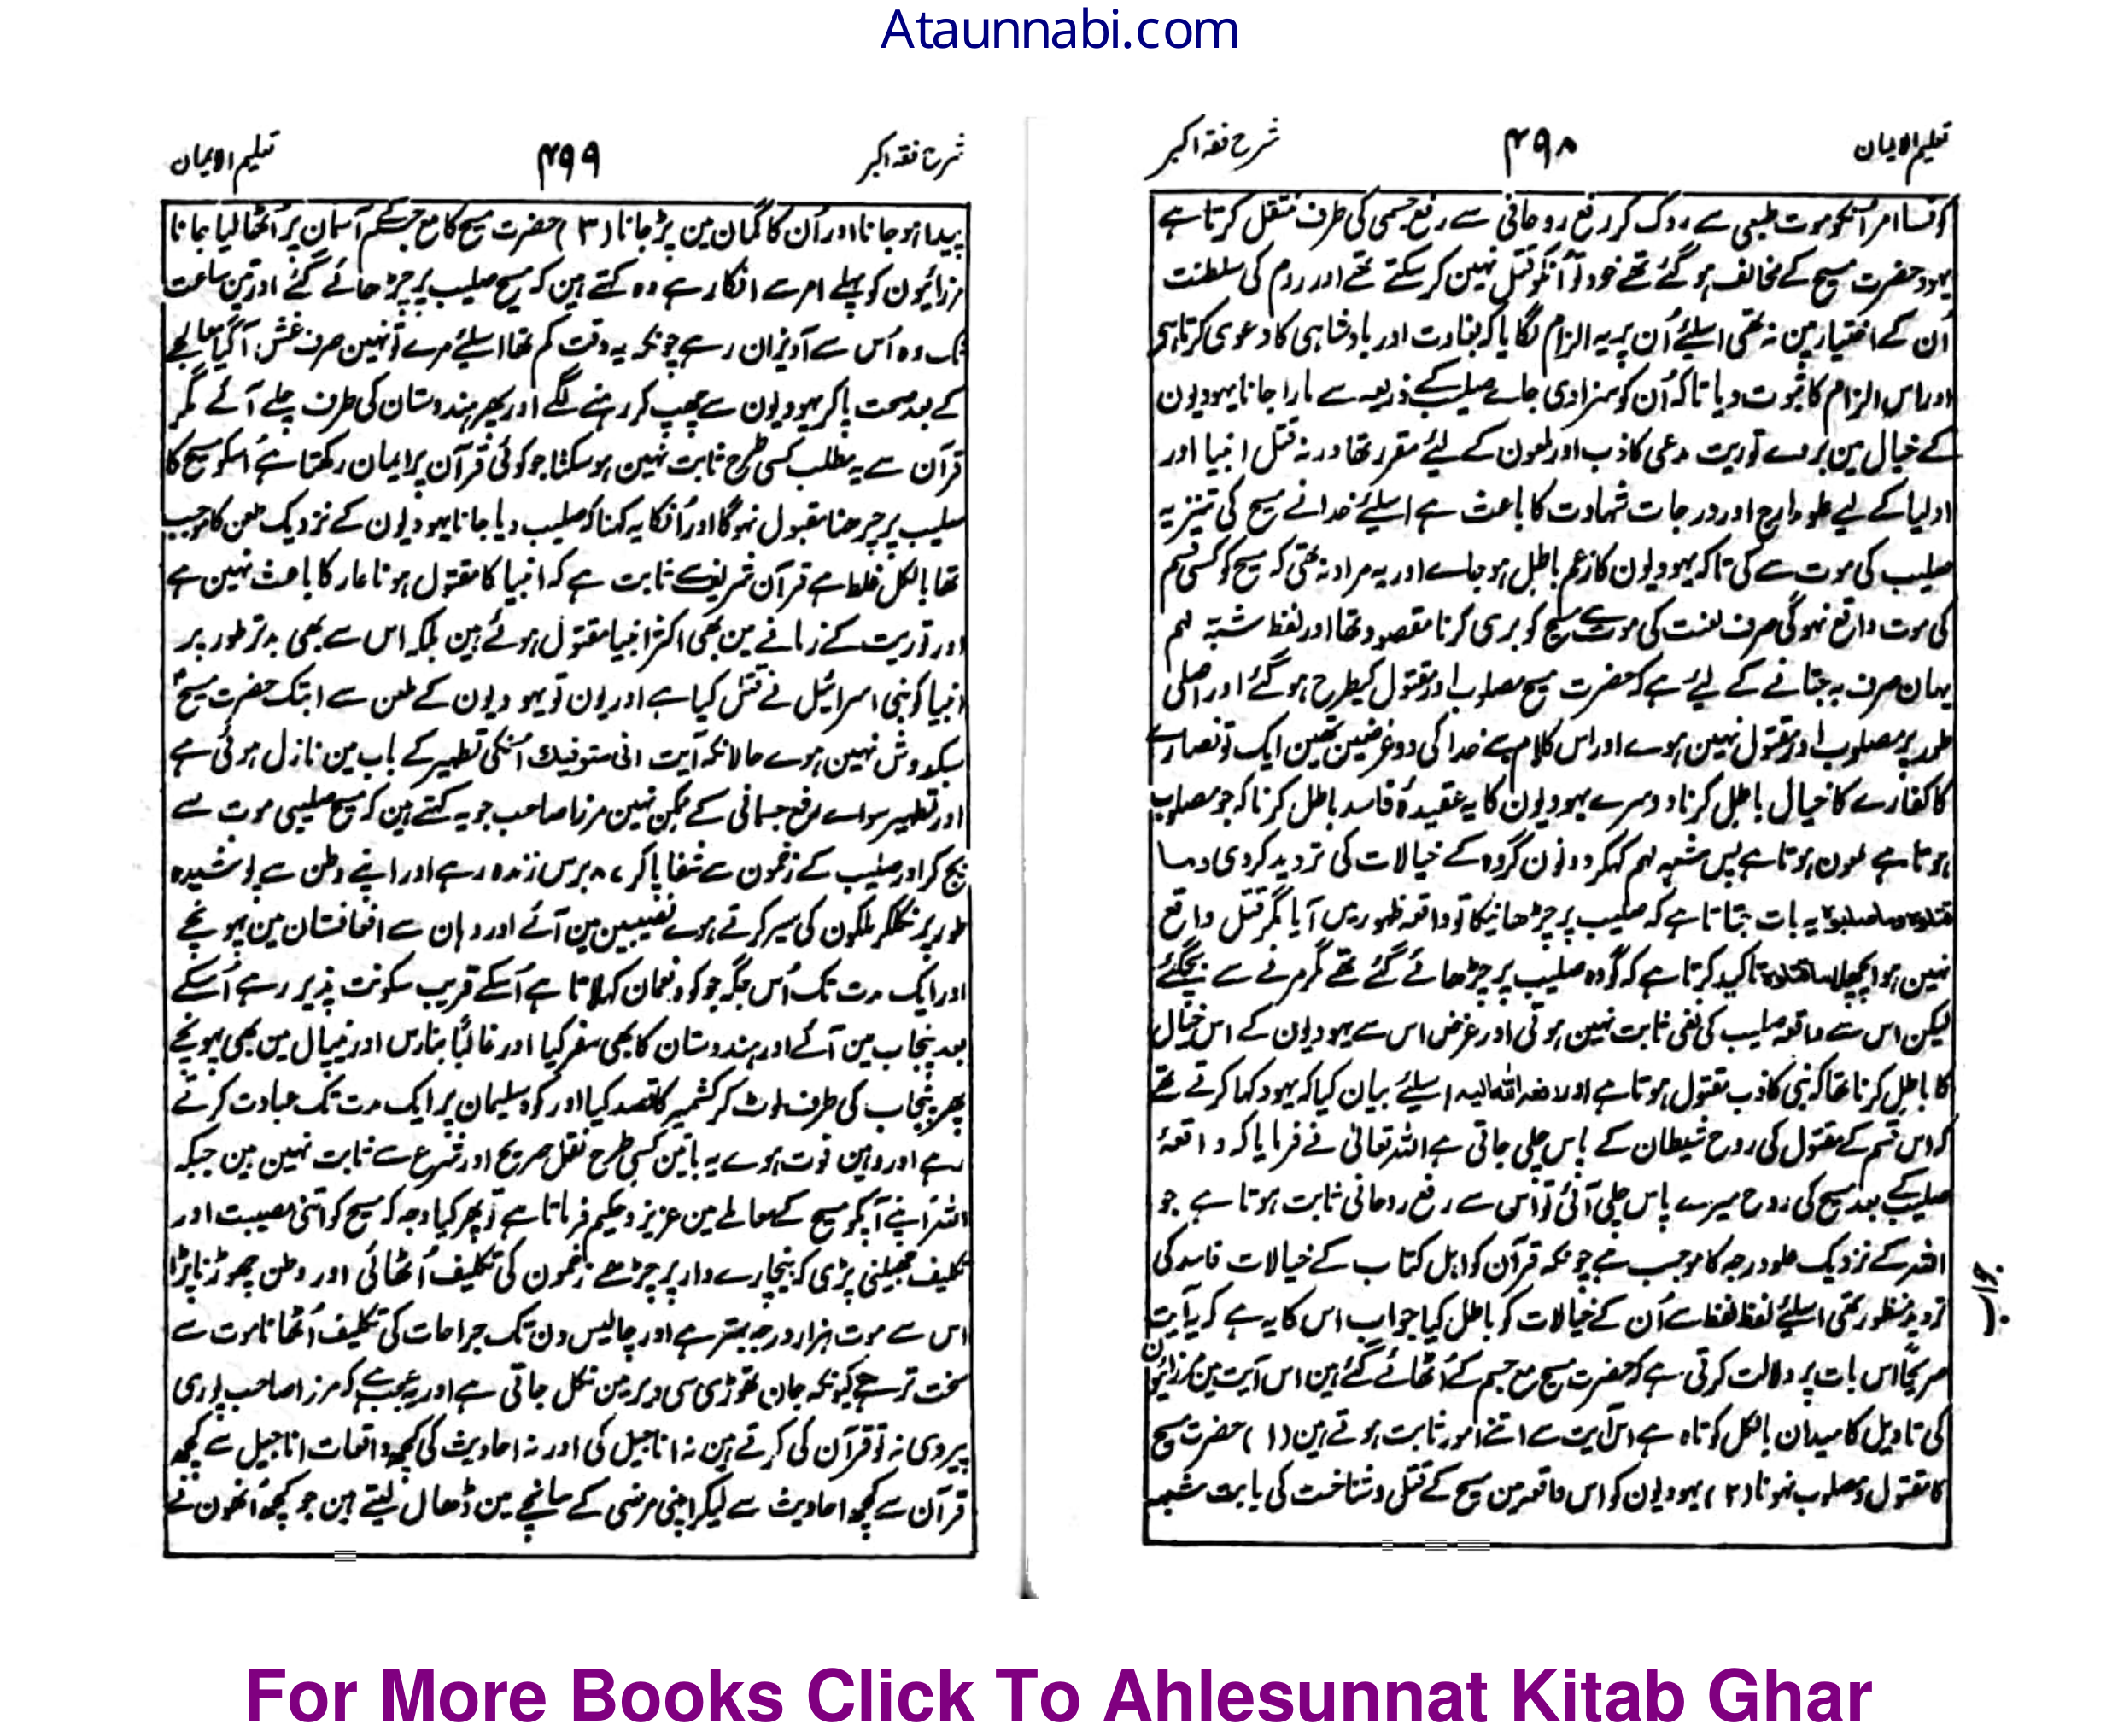 Ataunnabi.com
تعلیم الایمان ۴۹۸ شرح فقہ اکبر
کونسا امر اُنکو موت طبعی سے روک کر رفع روحانی سے رفع جسمی کی طرف منتقل کرتا ہے
یہود حضرت مسیح کے مخالف ہو گئے تھے خود تو اُنکو قتل نہین کر سکتے تھے اور روم کی سلطنت
اُن کے اختیار مین نہ تھی اسلیئے اُن پر یہ الزام لگایا کہ بغاوت اور بادشاہی کا دعوی کرتا ہے
اور اس الزام کا ثبوت دیا تاکہ اُن کو سزا دی جاے صلیب کے ذریعہ سے مارا جانا یہودیون
کے خیال مین بروے توریت مدعی کاذب اور ملعون کے لیئے مقرر تھا ورنہ قتل انبیا اور
اولیا کے لیے علو مدارج اور درجات شہادت کا باعث ہے اسلیئے خدا نے مسیح کی تنزیہ
صلیب کی موت سے کی تاکہ یہودیون کا زعم باطل ہو جاے اور یہ مراد نہ تھی کہ مسیح کو کسی قسم
کی موت واقع نہوگی صرف لعنت کی موت سے مسیح کو بری کرنا مقصود تھا اور لفظ شبّہ لہم
یہان صرف یہ جتانے کے لیئے ہے کہ حضرت مسیح مصلوب اور مقتول کیطرح ہو گئے اور اصلی
طور پر مصلوب اور مقتول نہین ہوے اور اس کلام سے خدا کی دو غرضین تھین ایک تو نصارے
کا کفارے کا خیال باطل کرنا دوسرے یہودیون کا یہ عقیدۂ فاسد باطل کرنا کہ جو مصلوب
ہوتا ہے ملعون ہوتا ہے پس شبہ لہم کہکر دونون گروہ کے خیالات کی تردید کر دی وما
قتلوہ وما صلبوہ یہ بات جتاتا ہے کہ صلیب پر چڑھانیکا تو واقعہ ظہور مین آیا مگر قتل واقع
نہین ہوا پچھلا ما قتلوہ تاکید کرتا ہے کہ گو وہ صلیب پر چڑھائے گئے تھے مگر مرنے سے بچگئے
لیکن اس سے واقعہ صلیب کی نفی ثابت نہین ہوتی اور غرض اس سے یہودیون کے اس خیال
کا باطل کرنا تھا کہ نبی کاذب مقتول ہوتا ہے اور رفعہ اللہ الیہ اسلیئے بیان کیا کہ یہود کہا کرتے تھے
کہ اس قسم کے مقتول کی روح شیطان کے پاس چلی جاتی ہے اللہ تعالیٰ نے فرمایا کہ واقعۂ
صلیب کے بعد مسیح کی روح میرے پاس چلی آئی تو اُس سے رفع روحانی ثابت ہوتا ہے جو
اللہ کے نزدیک علو درجہ کا موجب ہے چونکہ قرآن کو اہل کتاب کے خیالات فاسد کی
تردید منظور تھی اسلیئے لفظ لفظ سے اُن کے خیالات کو باطل کیا جواب اس کا یہ ہے کہ یہ آیت
جواب
صریحًا اس بات پر دلالت کرتی ہے کہ حضرت مسیح مع جسم کے اُٹھائے گئے ہین اس آیت مین مرزائیون
کی تاویل کا میدان بالکل کوتاہ ہے اس آیت سے اتنے امور ثابت ہوتے ہین (۱) حضرت مسیح
کا مقتول و مصلوب نہونا (۲) یہودیون کو اس واقعہ مین مسیح کے قتل و شناخت کی بابت شبہہ
شرح فقہ اکبر ۴۹۹ تعلیم الایمان
پیدا ہو جانا اور اُن کا گمان مین پڑ جانا (۳) حضرت مسیح کا مع جسم کے آسمان پر اُٹھا لیا جانا
مرزائیون کو پہلے امر سے انکار ہے وہ کہتے ہین کہ مسیح صلیب پر چڑھائے گئے اور تین ساعت
تک وہ اُس سے آویزان رہے چونکہ یہ وقت کم تھا اسلیئے مرے تو نہین صرف غش آگیا معالجے
کے بعد صحت پا کر یہودیون سے چھپ کر رہنے لگے اور پھر ہندوستان کی طرف چلے آئے مگر
قرآن سے یہ مطلب کسی طرح ثابت نہین ہو سکتا جو کوئی قرآن پر ایمان رکھتا ہے اُسکو مسیح کا
صلیب پر چڑھنا مقبول نہوگا اور اُنکا یہ کہنا کہ صلیب دیا جانا یہودیون کے نزدیک طعن کا موجب
تھا بالکل غلط ہے قرآن شریف سے ثابت ہے کہ انبیا کا مقتول ہونا عار کا باعث نہین ہے
اور توریت کے زمانے مین بھی اکثر انبیا مقتول ہوئے ہین بلکہ اس سے بھی بدتر طور پر
انبیا کو بنی اسرائیل نے قتل کیا ہے اور یون تو یہودیون کے طعن سے ابتک حضرت مسیح
سبکدوش نہین ہوے حالانکہ آیت انی متوفیک اُنکی تطہیر کے باب مین نازل ہوئی ہے
اور تطہیر سواے رفع جسمانی کے ممکن نہین مرزا صاحب جو یہ کہتے ہین کہ مسیح صلیبی موت سے
بچ کر اور صلیب کے زخمون سے شفا پا کر ۸۷ برس زندہ رہے اور اپنے وطن سے پوشیدہ
طور پر نکلکر ملکون کی سیر کرتے ہوے نصیبین مین آئے اور وہان سے افغانستان مین پہونچے
اور ایک مدت تک اُس جگہ جو کوہ نعمان کہلاتا ہے اُسکے قریب سکونت پذیر رہے اُسکے
بعد پنجاب مین آئے اور ہندوستان کا بھی سفر کیا اور غالبًا بنارس اور نیپال مین بھی پہونچے
پھر پنجاب کی طرف لوٹ کر کشمیر کا قصد کیا اور کوہ سلیمان پر ایک مدت تک عبادت کرتے
رہے اور وہین فوت ہوے یہ باتین کسی طرح نقل صریح اور شرع سے ثابت نہین ہین جبکہ
اللہ اپنے آپکو مسیح کے معاملے مین عزیز و حکیم فرماتا ہے تو پھر کیا وجہ کہ مسیح کو اتنی مصیبت اور
تکلیف جھیلنی پڑی کہ بیچارے دار پر چڑھے زخمون کی تکلیف اُٹھائی اور وطن چھوڑنا پڑا
اس سے موت ہزار درجہ بہتر ہے اور چالیس دن تک جراحات کی تکلیف اُٹھانا موت سے
سخت تر ہے کیونکہ جان تھوڑی سی دیر مین نکل جاتی ہے اور یہ عجب ہے کہ مرزا صاحب پوری
پیروی نہ تو قرآن کی کرتے ہین نہ اناجیل کی اور نہ احادیث کی کچھ واقعات اناجیل سے کچھ
قرآن سے کچھ احادیث سے لیکر اپنی مرضی کے سانچے مین ڈھال لیتے ہین جو کچھ اُنھون نے
For More Books Click To Ahlesunnat Kitab Ghar